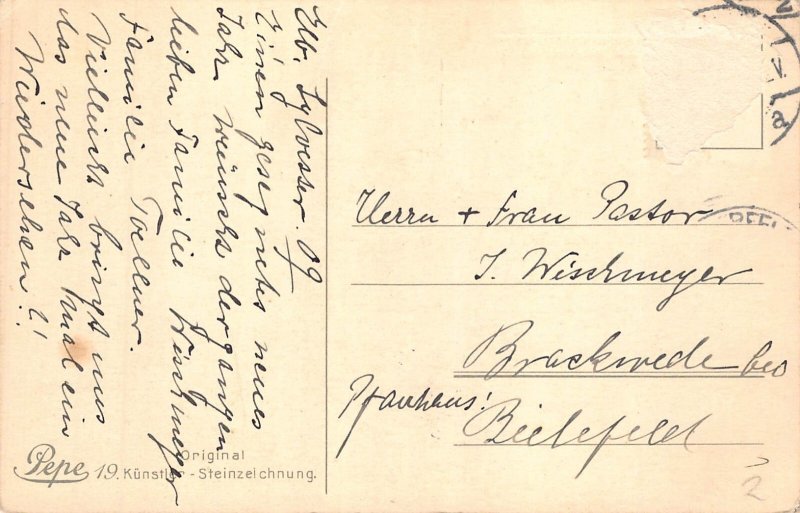 Elb. Sylvester. 09
Einen gesegnetes neues
Jahr wünscht der ganzen
lieben Familie Wischmeyer
Familie Toellner.
Vielleicht bringt uns
das neue Jahr mal ein
Wiedersehen!!
Herrn + Frau Pastor
J. Wischmeyer
Brackwede bei
Pfarrhaus!
Bielefeld
Original
Pepe 19. Künstler - Steinzeichnung.
2